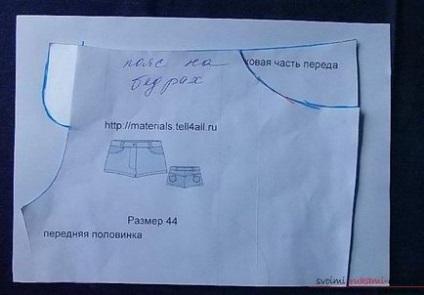 пояс на
бедрах
ковая часть переда
http://materials.tell4all.ru
Размер 44
передняя половинка
svoimi rukami